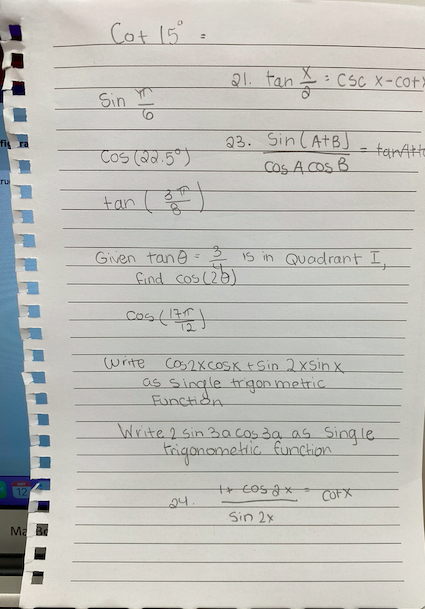 Cot 15° =
21. tan x/2 = csc x - cot x
Sin π/6
23. Sin(A+B) / cos A cos B = tan A +
Cos (22.5°)
tan (3π/8)
Given tan θ = 3/4 is in Quadrant I,
find cos(2θ)
cos (17π/12)
Write cos2xcosx + sin 2xsinx
as single trgonmetric
Function
Write 2 sin 3a cos 3a as single
trigonometric function
24. 1 + cos 2x / sin 2x = cotx
12